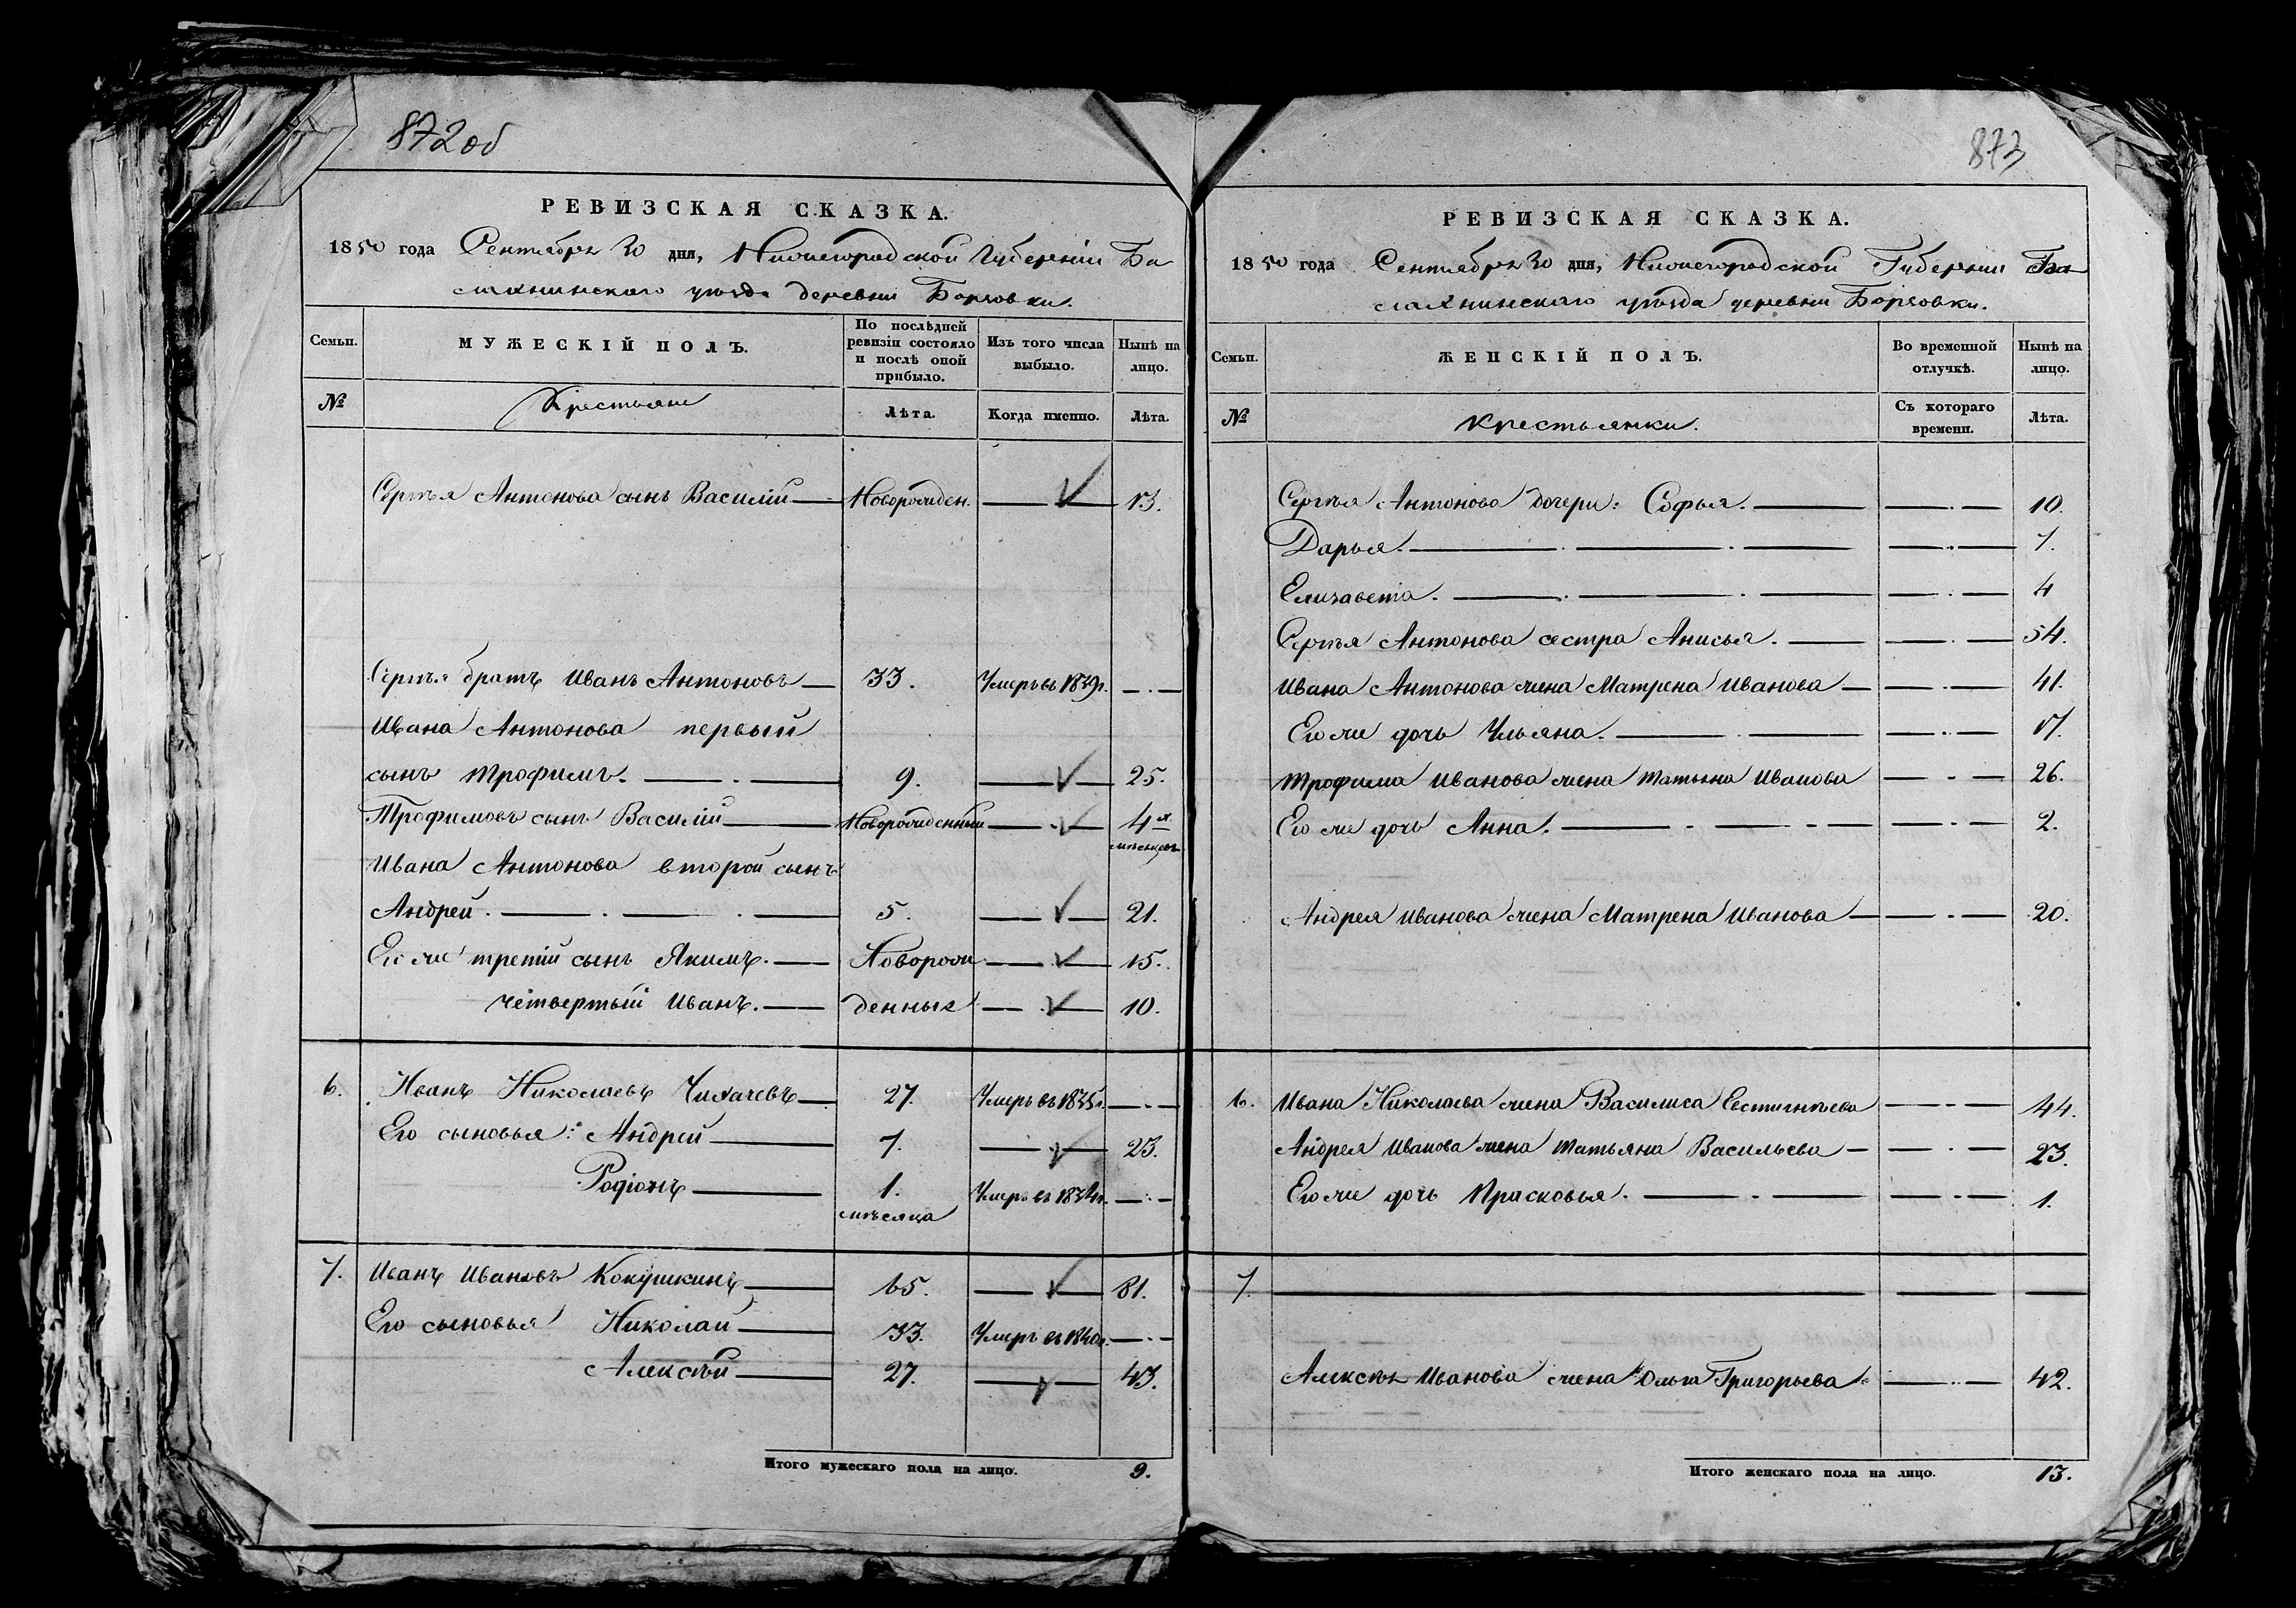 872об
РЕВИЗСКАЯ СКАЗКА.
1850 года Сентября 30 дня, Нижегородской Губерніи Ба
лахнинскаго уѣзда деревни Борзовки.
Семьи. МУЖЕСКІЙ ПОЛЪ. По послѣдней ревизіи состояло и послѣ оной прибыло. Изъ того числа выбыло. Нынѣ на лицо.
№ Крестьяне Лѣта. Когда именно. Лѣта.
Сергѣя Антонова сынъ Василій Новорожден. 13.
Сергѣя братъ Иванъ Антоновъ 33. Умеръ въ 1839г.
Ивана Антонова первый
сынъ Трофимъ. 9. 25.
Трофимовъ сынъ Василій Новорожденный 4х мѣсяцевъ
Ивана Антонова второй сынъ
Андрей. 5. 21.
Его же третій сынъ Якимъ. Новорож 15.
четвертый Иванъ. денные 10.
6. Иванъ Николаевъ Чихачевъ 27. Умеръ въ 1835г.
Его сыновья: Андрей 7. 23.
Родіонъ 1. мѣсяца Умеръ въ 1834г.
7. Иванъ Ивановъ Кокушкинъ 65. 81.
Его сыновья Николай 33. Умеръ въ 1840г.
Алексѣй 27. 43.
Итого мужескаго пола на лицо. 9.
873
РЕВИЗСКАЯ СКАЗКА.
1850 года Сентября 30 дня, Нижегородской Губерніи Ба
лахнинскаго уѣзда деревни Борзовки.
Семьи. ЖЕНСКІЙ ПОЛЪ. Во временной отлучкѣ. Нынѣ на лицо.
№ Крестьянки. Съ котораго времени. Лѣта.
Сергѣя Антонова дочери: Софья. 10.
Дарья. 7.
Елизавета. 4
Сергѣя Антонова сестра Анисья. 54.
Ивана Антонова жена Матрена Иванова 41.
Его же дочь Ульяна. 17.
Трофима Иванова жена Татьяна Иванова 26.
Его же дочь Анна. 2.
Андрея Иванова жена Матрена Иванова 20.
6. Ивана Николаева жена Василиса Евстигнѣева 44.
Андрея Иванова жена Татьяна Васильева 23.
Его же дочь Прасковья. 1.
7.
Алексѣя Иванова жена Ольга Григорьева 42.
Итого женскаго пола на лицо. 13.